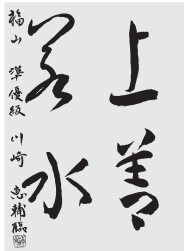 上善
若水
福山 準優級 川崎 恵輔臨